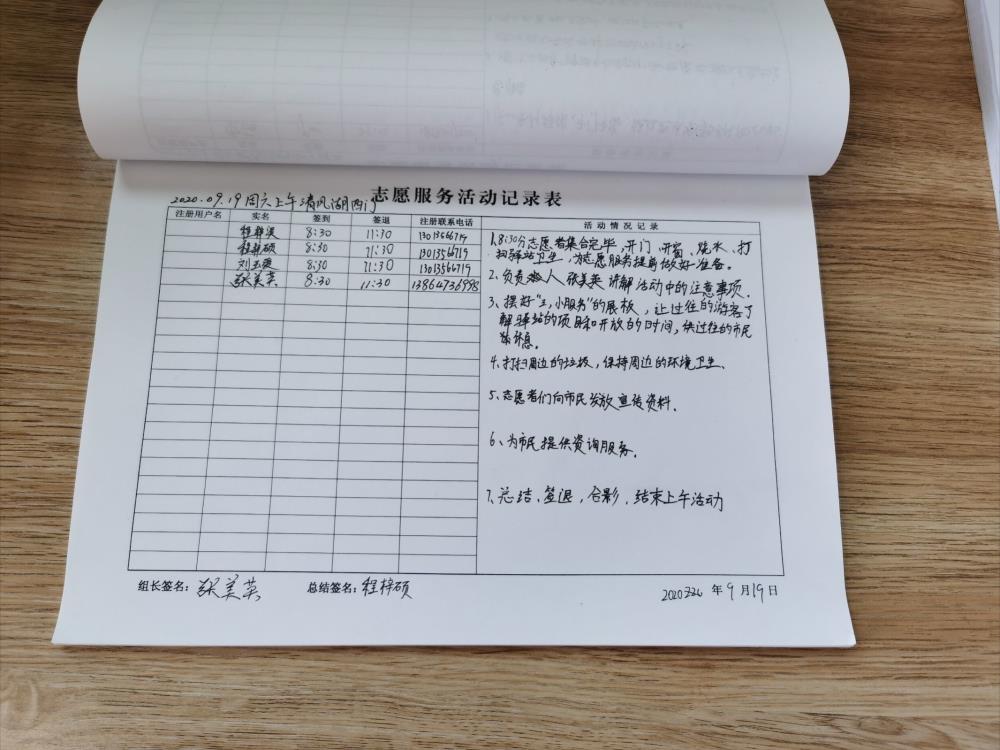 志愿服务活动记录表
2020.09.19周六上午清风湖西门
注册用户名 实名 签到 签退 注册联系电话 活动情况记录
8:30 11:30 13013566719
程梓硕 8:30 11:30 13013566719
刘玉爽 8:30 11:30 13013566719
张美英 8:30 11:30 13864736998
1、8:30分志愿者集合完毕、开门、开窗、烧水、打
扫驿站卫生,为志愿服务提前做好准备。
2、负责人张美英讲解活动中的注意事项.
3、摆好“小服务”的展板,让过往的游客了
解驿站的项目和开放的时间,供过往的市民
休息。
4、打扫周边的垃圾,保持周边的环境卫生、
5、志愿者们向市民发放宣传资料.
6、为市民提供资询服务.
7、总结、签退,合影.结束上午活动
组长签名:张美英 总结签名:程梓硕 2020 年9月19日